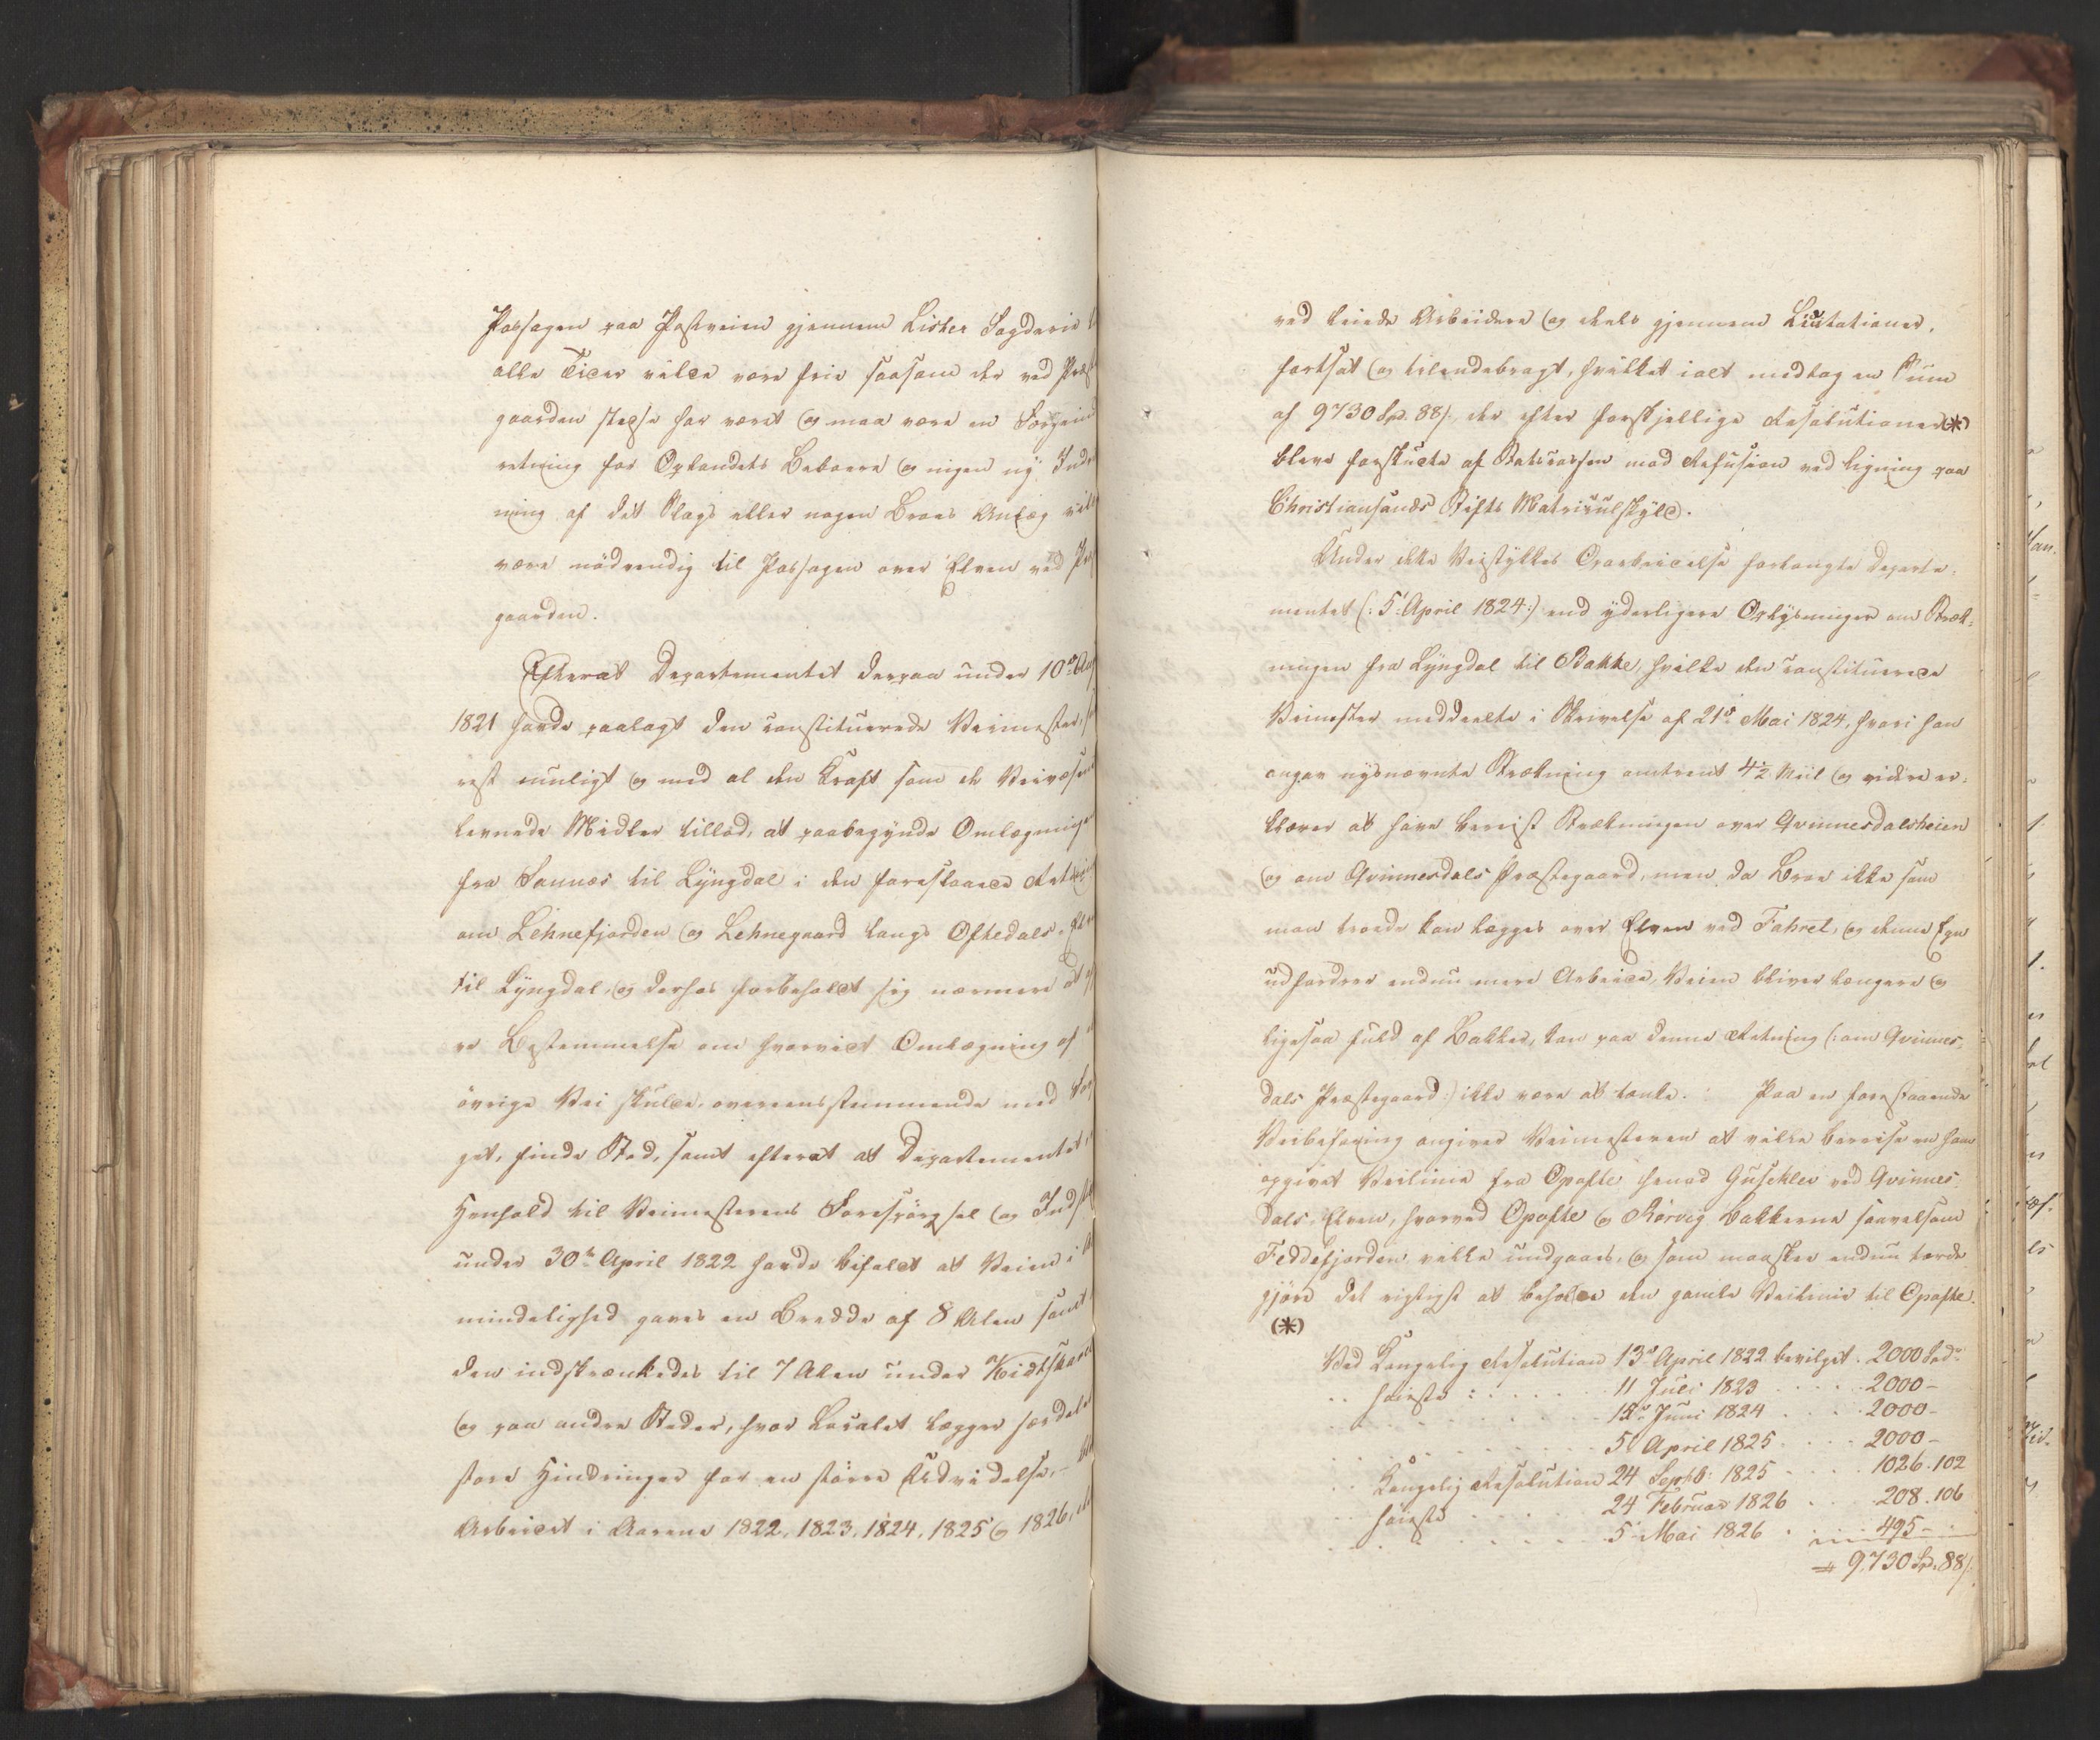 Passagen paa Postveien gjennem Lister Fogderie
alle Tider vilde være frie saasom der ved Præst
gaarden stedse har været og maa være en Færgeind
retning for Oplandets Beboere og ingen ny Ind
ning af det Slags eller nogen Broes Anlæg vil
være nødvendig til Passagen over Elven ved Præ
gaarden.
Efterat Departementet derpaa under 10de Aug
1821 havde paalagt den constituerede Veimester, s
rest muligt og med al den Kraft som de Veivæsen
levnede Midler tillod, at paabegynde Omlægninge
fra Fannes til Lyngdal i den foreslaaede Retning
om Lehnefjorden og Lehnegaard langs Oftedals-Elv
til Lyngdal, og derhos forbeholdt sig nærmere at
re Bestemmelse om hvorvidt Omlægning af
övrige Vei skulde, overeensstemmende med Fors
get, finde Sted, samt efterat at Departementet i
Henhold til Veimesterens Forespörgsel og Indst
under 30te April 1822 havde bifaldt at Veien i A
mindelighed gaves en Bredde af 8 Alen samt
den indskrænkedes til 7 Alen under Kidtskared
og paa andre Steder, hvor Localet lægger særdeles
store Hindringer for en större Udvidelse, - bl
Arbeidet i Aarene 1822, 1823, 1824, 1825 og 1826, de
ved leiede Arbeidere og deels gjennem Licitationer,
fortsat og tilendebragt, hvilket ialt medtog en Sum
af 9730 Spd. 88 s. der efter forskjellige Resolutioner (*)
bleve forskudte af Statscassen mod Refusion ved Ligning paa
Christiansands Stifts Matriculskyld.
Under dette Veistykkes Oparbeidelse forlangte Departe-
mentet (: 5 April 1824 :) end yderligere Oplysninger om Stræk-
ningen fra Lyngdal til Bakke, hvilke den constituerede
Veimester meddeelte i Skrivelse af 21de Mai 1824, hvori han
angav nysnævnte Strækning omtrent 4½ Miil og videre er-
klærer at have bereist Strækningen over Qvinnesdalsheien
og om Qvinnesdals Præstegaard, men da Broe ikke som
man troede kan lægges over Elven ved Fahret, og denne Egn
udfordrer endnu mere Arbeide, Veien bliver længere og
ligesaa fuld af Bakker, kan paa denne Retning (: om Qvinnes-
dals Præstegaard :) ikke være at tænke. : Paa en forestaaende
Veibefaring angiver Veimesteren at ville bereise en ham
opgivet Veilinie fra Opofte henad Gusehlev ved Qvinnes
dals-Elven, hvorved Opofte og Rørvig Bakkerne saavelsom
Feddefjorden vilde undgaaes, og som maaskee endnu turde
gjöre det rigtigst at beholde den gamle Veilinie til Opofte.
(*)
Ved Kongelig Resolution 13de April 1822 bevilget . 2000 Spd.
. . höieste : . . . . . . 11 Juli 1823 . . . . . 2000 -
. . . . . . . . . 12te Juni 1824 . . . . 2000 -
. . . . . . . . . 5 April 1825 . . . . 2000 -
. . Kongelig Resolution 24 Septb: 1825 . . . . 1026. 102
. . höieste . . . . . 24 Februar 1826 . . . 208. 106
. . . . . . . . . 5 Mai 1826 . . . . . 495 -
9,730 Sp. 88 s.